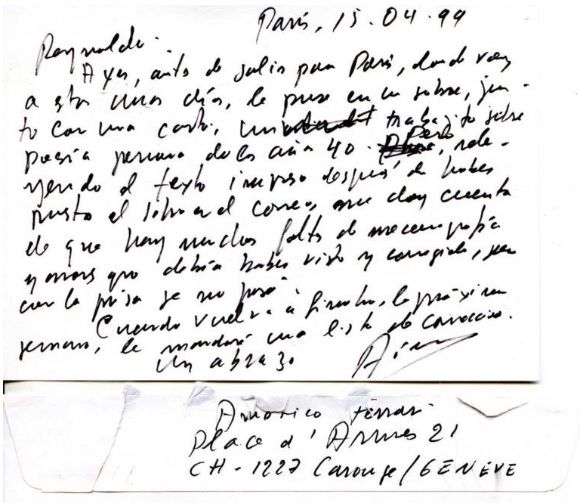 Paris, 15.04.99
Reynaldo:
Ayer, antes de salir para Paris, donde voy
a estar unos días, le puse en un sobre, jun-
to con una carta, un trabajito sobre
poesía peruana de los años 40. Pero, rele-
yendo el texto impreso después de haber
puesto el sobre en el correo, me doy cuenta
de que hay muchas faltas de mecanografía
y errores que debía haber visto y corregido, pero
con la prisa se me pasó
Cuando vuelva a Ginebra, la próxima
semana, le mandaré una lista de correcciones.
Un abrazo
Américo Ferrari
Place d'Armes 21
CH-1227 Carouge/GENEVE